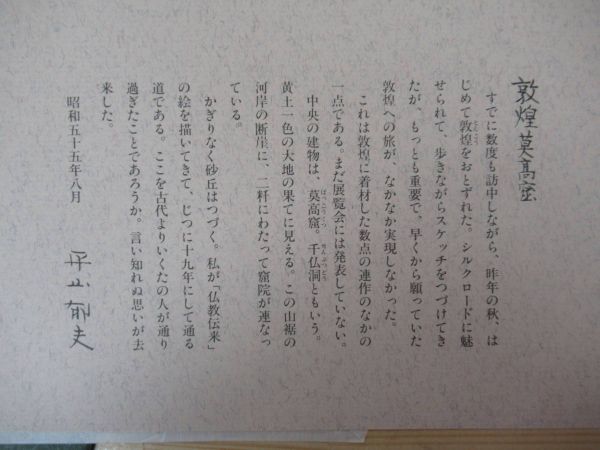 敦煌莫高窟
すでに数度も訪中しながら、昨年の秋、は
じめて敦煌をおとずれた。シルクロードに魅
せられて、歩きながらスケッチをつづけてき
たが、もっとも重要で、早くから願っていた
敦煌への旅が、なかなか実現しなかった。
これは敦煌に着材した数点の連作のなかの
一点である。まだ展覧会には発表していない。
中央の建物は、莫高窟。千仏洞ともいう。
黄土一色の大地の果てに見える。この山裾の
河岸の断崖に、二粁にわたって窟院が連なっ
ている。
かぎりなく砂丘はつづく。私が「仏教伝来」
の絵を描いてきて、じつに十九年にして通る
道である。ここを古代よりいくたの人が通り
過ぎたことであろうか。言い知れぬ思いが去
来した。
昭和五十五年八月
平山郁夫